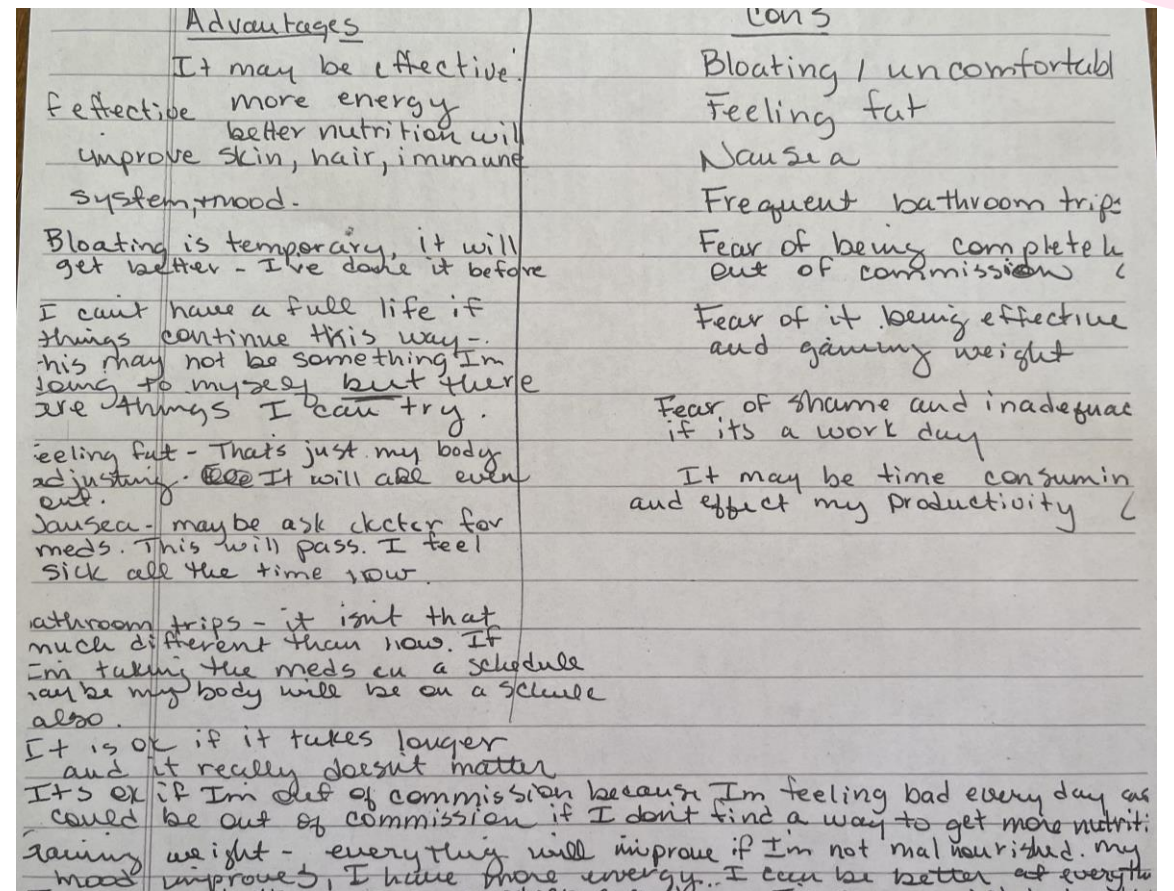 Advantages
It may be effective.
more energy
better nutrition will
improve skin, hair, immune
system, + mood.
Bloating is temporary, it will
get better - I've done it before
I can't have a full life if
things continue this way -
this may not be something Im
doing to myself but there
are things I can try.
eeling fat - That's just my body
adjusting. It will all even
out.
Nausea - maybe ask doctor for
meds. This will pass. I feel
sick all the time now.
athroom trips - it isn't that
much different than now. If
Im taking the meds on a schedule
maybe my body will be on a
also.
It is ok if it takes longer
and it really doesn't matter
Its ok if Im out of commission because Im feeling bad every day
could be out of commission if I don't find a way to get more nutriti
gaining weight - everything will improve if I'm not malnourished. my
mood improves, I have more energy. I can be better at everyth
Cons
Bloating / uncomfortabl
Feeling fat
Nausea
Frequent bathroom trips
Fear of being completel
out of commission
Fear of it being effective
and gaining weight
Fear of shame and inadequac
if its a work day
It may be time consumin
and effect my productivity